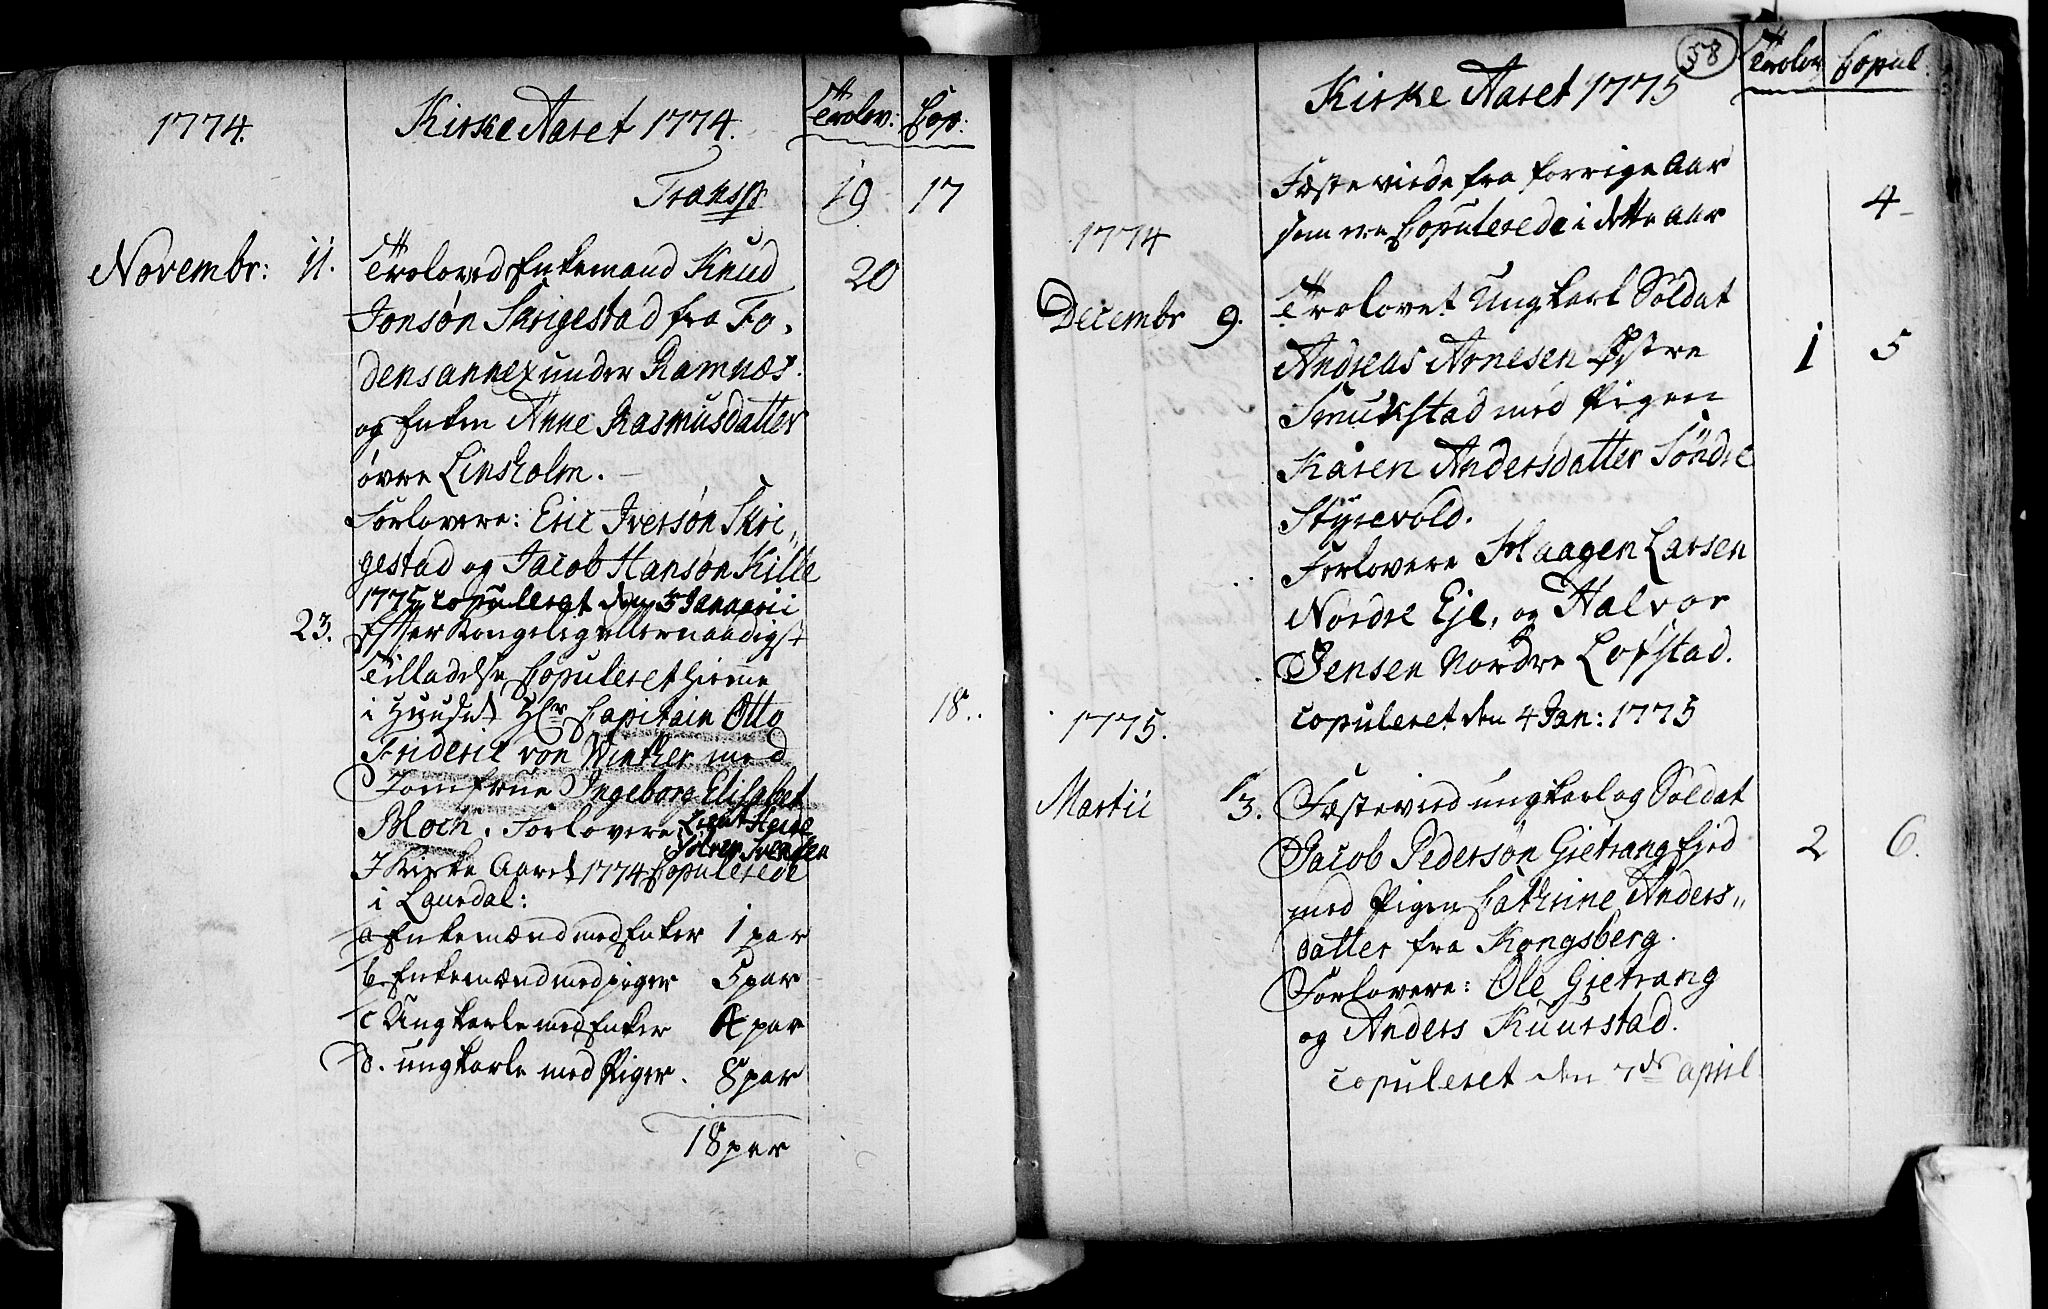 1774.
Kirke Aaret 1774.
Trolov: Cop:
Transp. 19 17
Novembr: 11. Troloved Enkemand Knud 20
Jonsøn Skrigestad fra Fo-
dens annex under Ramnæs.
og Enken Anne Rasmusdatter
øvre Linsholm.
Forlovere: Eric Iversøn Skri-
gestad og Jacob Hansøn Kille
1775 copuleret den 5 Januarii
23. Efter Kongelig allernaadigst
Tilladelse Copuleret hiemme
i Huuset Hr Capitain Otto 18..
Friderik von Winther med
Jomfrue Ingeborg Elisabet
Moch. Forlovere Lieut Heide
Sølren Svendsen
I Kirke Aaret 1774 Copulerede
i Laurdal:
a Enkemænd med Enker 1 par
b Enkemænd med piger 5 par
c Ungkarle med Enker 4 par
d. ungkarle med Piger. 8 par
18 par
58
Kirke Aaret 1775
Trolov Copul.
Fæstevirde fra forrige Aar
som ere Copulerede i dette Aar 4
1774
Decembr 9. Trolovet Ungkarl Soldat
Andreas Arnesen Østre 1 5
Smukstad med Pigen
Karen Andersdatter Søndre
Styrevold.
Forlovere Haagen Larsen
Nordre Eje, og Halvor
Jensen Nordre Lofstad.
copuleret den 4 Jan: 1775
1775.
Martii 13. Fæstevird ungkarl og Soldat
Jacob Pedersøn Gietrang Ejed 2 6.
med Pigen Cathrine Anders-
datter fra Kongsberg.
Forlovere: Ole Gietrang
og Anders Kuurstad.
copuleret den 7de april